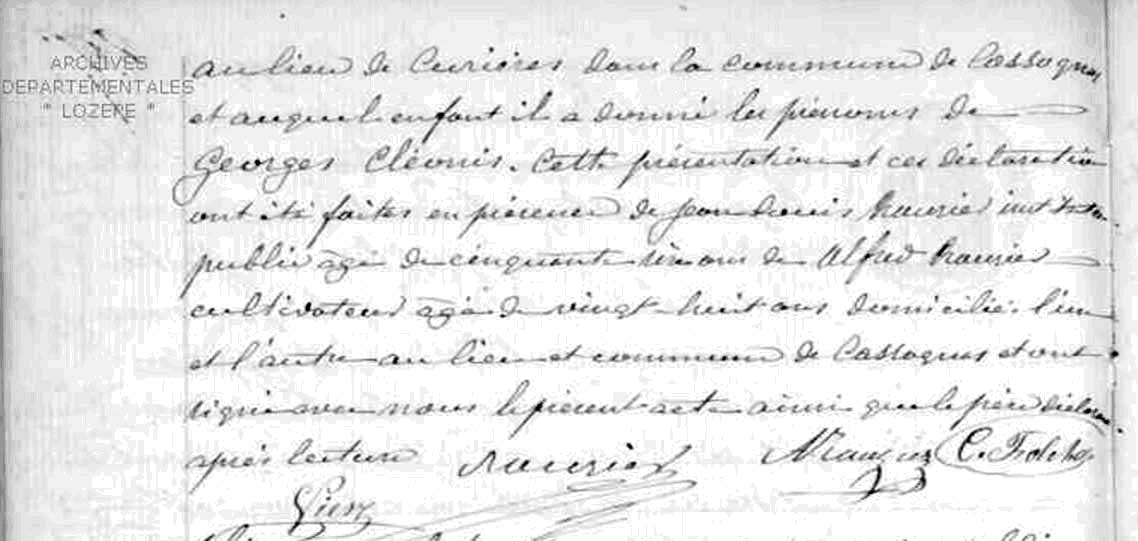 ARCHIVES
DEPARTEMENTALES
" LOZERE "
au lieu de Curières dans la commune de Cassagnas
et auquel enfant il a donné les prénoms de
Georges Cléonis. Cette présentation et ces déclaration
ont été faites en présence de Jean Louis Maurin
public agé de cinquante six ans de Alfred
cultivateur agé de vingt huit ans domiciliés l'un
et l'autre au lieu et commune de Cassagnas et ont
signé avec nous le présent acte ainsi que le père
après lecture